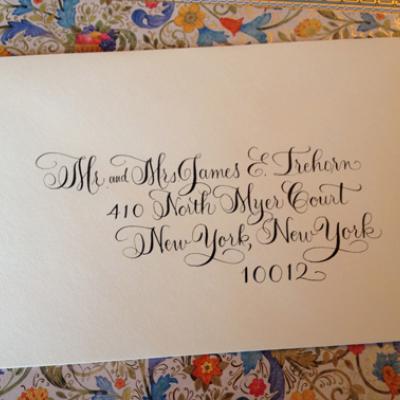 Mr. and Mrs James E. Trehorn
410 North Myer Court
New York, New York
10012